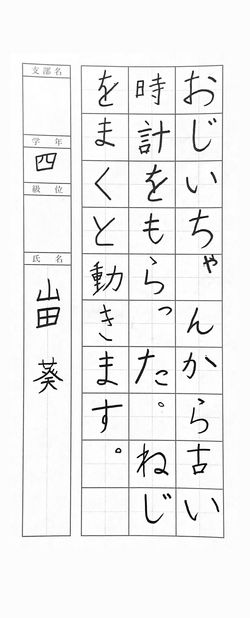 おじいちゃんから古い
時計をもらった。ねじ
をまくと動きます。
支部名
学年
四
級位
氏名
山田 葵